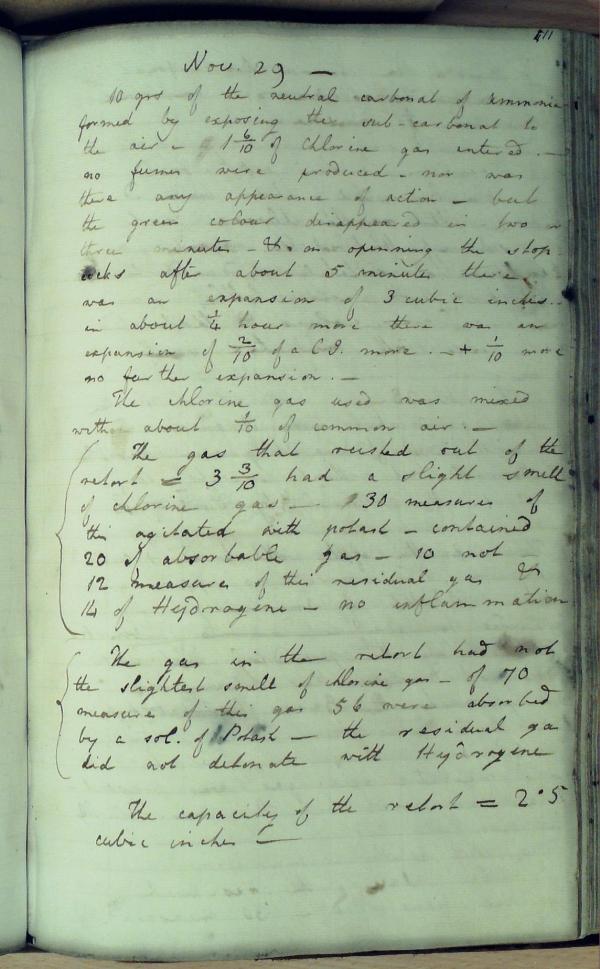 511
Nov. 29 —
10 grs of the neutral carbonat of ammonia
formed by exposing the sub-carbonat to
the air – 1 6/10 of chlorine gas entered. —
no fumes were produced – nor was
there any appearance of action – but
the green colour disappeared in two or
three minutes – & on openning the stop
cocks after about 5 minutes there
was an expansion of 3 cubic inches..
in about 1/4 hour more there was an
expansion of 2/10 of a C I. more. – + 1/10 more
no further expansion. —
The chlorine gas used was mixed
with about 1/10 of common air. —
The gas that rushed out of the
retort = 3 3/10 had a slight smell
of chlorine gas – 30 measures of
this agitated with potash – contained
20 of absorbable gas – 10 not –
12 measures of this residual gas &
14 of Hydrogene – no inflammation
The gas in the retort had not
the slightest smell of chlorine gas – of 70
measures of this gas 56 were absorbed
by a sol. of Potash – the residual ga
did not detonate with Hydrogene
The capacity of the retort = 2.5
cubic inches —